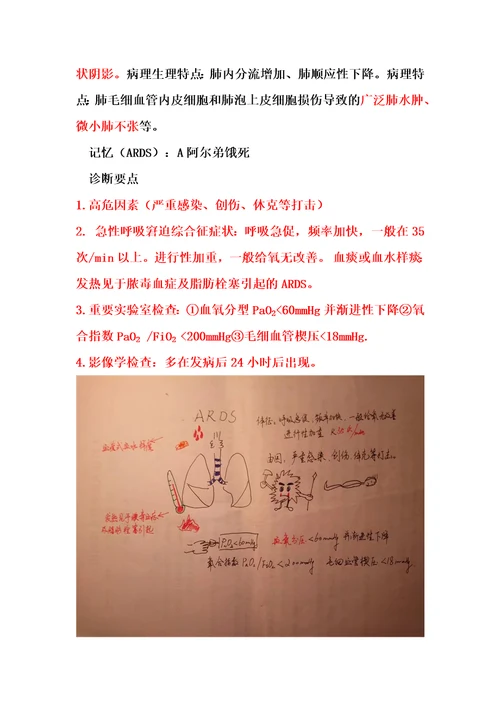 状阴影。病理生理特点：肺内分流增加、肺顺应性下降。病理特
点：肺毛细血管内皮细胞和肺泡上皮细胞损伤导致的广泛肺水肿、
微小肺不张等。
记忆（ARDS）：A阿尔弟饿死
诊断要点
1.高危因素（严重感染、创伤、休克等打击）
2. 急性呼吸窘迫综合征症状：呼吸急促，频率加快，一般在 35
次/min 以上。进行性加重，一般给氧无改善。 血痰或血水样痰；
发热见于脓毒血症及脂肪栓塞引起的 ARDS。
3.重要实验室检查：①血氧分型 PaO₂<60mmHg 并渐进性下降②氧
合指数 PaO₂ /FiO₂ <200mmHg③毛细血管楔压<18mmHg.
4.影像学检查：多在发病后 24 小时后出现。
ARDS
体征、呼吸急促、频率加快、一般给氧无改善
进行性加重
血痰或血水样痰
病因、严重感染、创伤、休克等打击。
发热见于脓毒血症
脂肪栓塞引起
PaO₂<60mmHg
血氧分压<60mmHg 并渐进性下降
氧合指数 PaO₂/FiO₂<200mmHg 毛细血管楔压<18mmHg